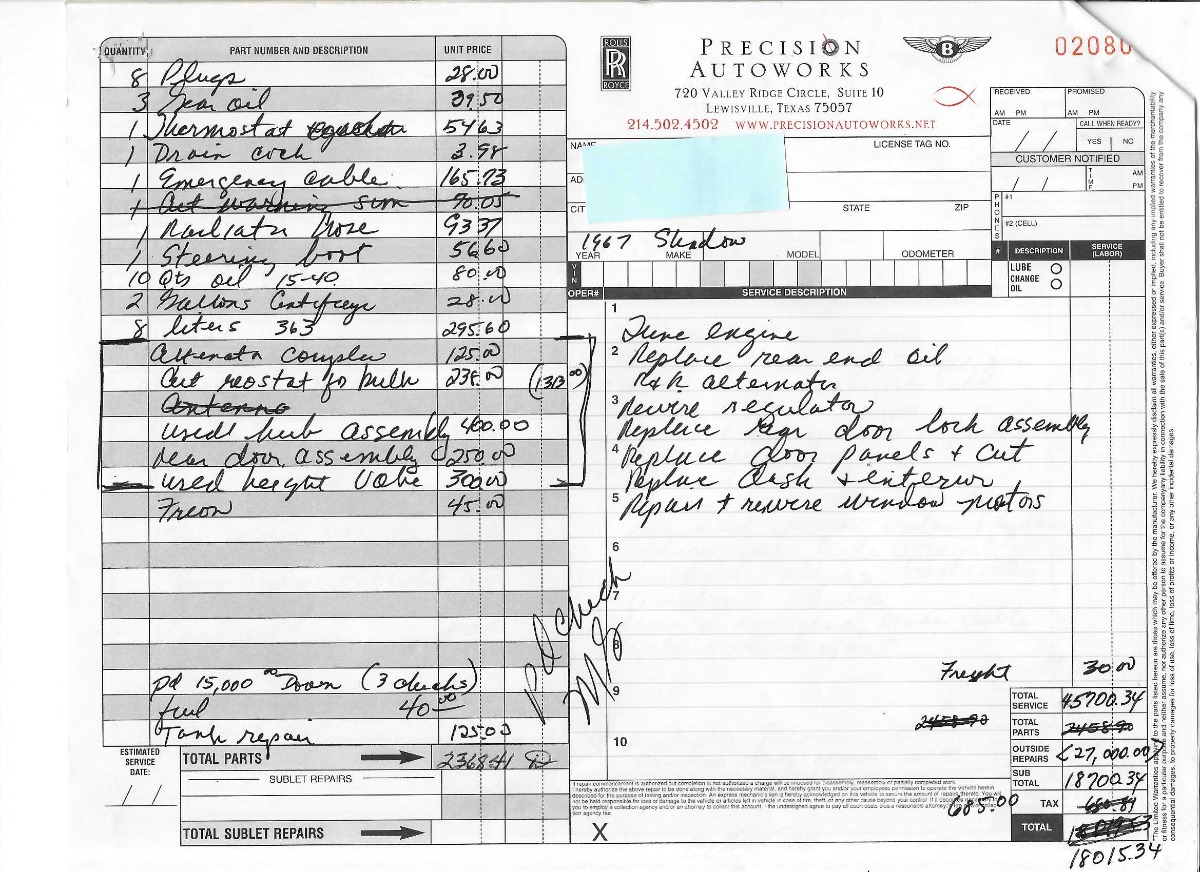 QUANTITY PART NUMBER AND DESCRIPTION UNIT PRICE
8 Plugs 28.00
3 Gear oil 39.50
1 Thermostat 54 63
1 Drain cock 3.98
1 Emergency Cable 165.73
1 Cut warning sim 70.05
1 Radiator Hose 93 37
1 Steering boot 56 60
10 Qts oil 15-40 80.00
2 Gallons Antifreeze 28.00
8 liters 363 295.60
Alternator Coupler 125.00
Cut reostat fo bulk 238.00 (1313 00)
Antenna
used hub assembly 400.00
rear door assembly 250.00
used height Valve 300.00
Freon 45.00
pd 15,000 00 Down (3 checks)
fuel 40 00
Tank repair 125.00
ESTIMATED SERVICE DATE:
/ /
TOTAL PARTS 2368 41
SUBLET REPAIRS
TOTAL SUBLET REPAIRS
ROLLS RR ROYCE
PRECISION AUTOWORKS
B
720 VALLEY RIDGE CIRCLE, SUITE 10
LEWISVILLE, TEXAS 75057
214.502.4502 WWW.PRECISIONAUTOWORKS.NET
02080
RECEIVED PROMISED
AM PM AM PM
DATE CALL WHEN READY?
/ / YES NO
CUSTOMER NOTIFIED
/ / TIME AM PM
PHONES
#1
#2 (CELL)
NAME LICENSE TAG NO.
AD
CIT STATE ZIP
1967 Shadow
YEAR MAKE MODEL ODOMETER
VIN
# DESCRIPTION SERVICE (LABOR)
LUBE
CHANGE OIL
OPER# SERVICE DESCRIPTION
1 Tune engine
2 Replace rear end oil
R&R alternator
3 Rewire regulator
Replace rear door lock assembly
4 Replace door panels + Cut
Replace Dash + interior
5 Repair + rewire window motors
6
7
8
9
10
pd Check
Freight 30.00
TOTAL SERVICE 45700.34
2458.90
TOTAL PARTS 2458.90
OUTSIDE REPAIRS <27,000.00>
SUB TOTAL 18700.34
685.00
TAX
TOTAL
18015.34
X